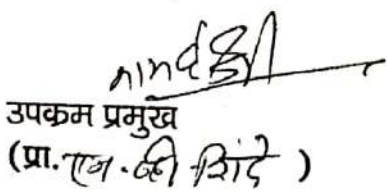 उपकम प्रमुख
(प्रा. एन. व्ही. शिंदे )